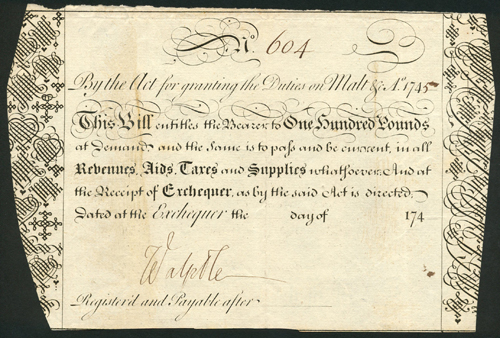 No. 604
By the Act for granting the Duties on Malt &c. Ao. 1745
This Bill entitles the Bearer to One Hundred Pounds
at Demand, and the same is to pass and be current, in all
Revenues, Aids, Taxes and Supplies whatsoever. And at
the Receipt of Exchequer, as by the said Act is directed,
Dated at the Exchequer the day of 174
Walpole
Register'd and Payable after